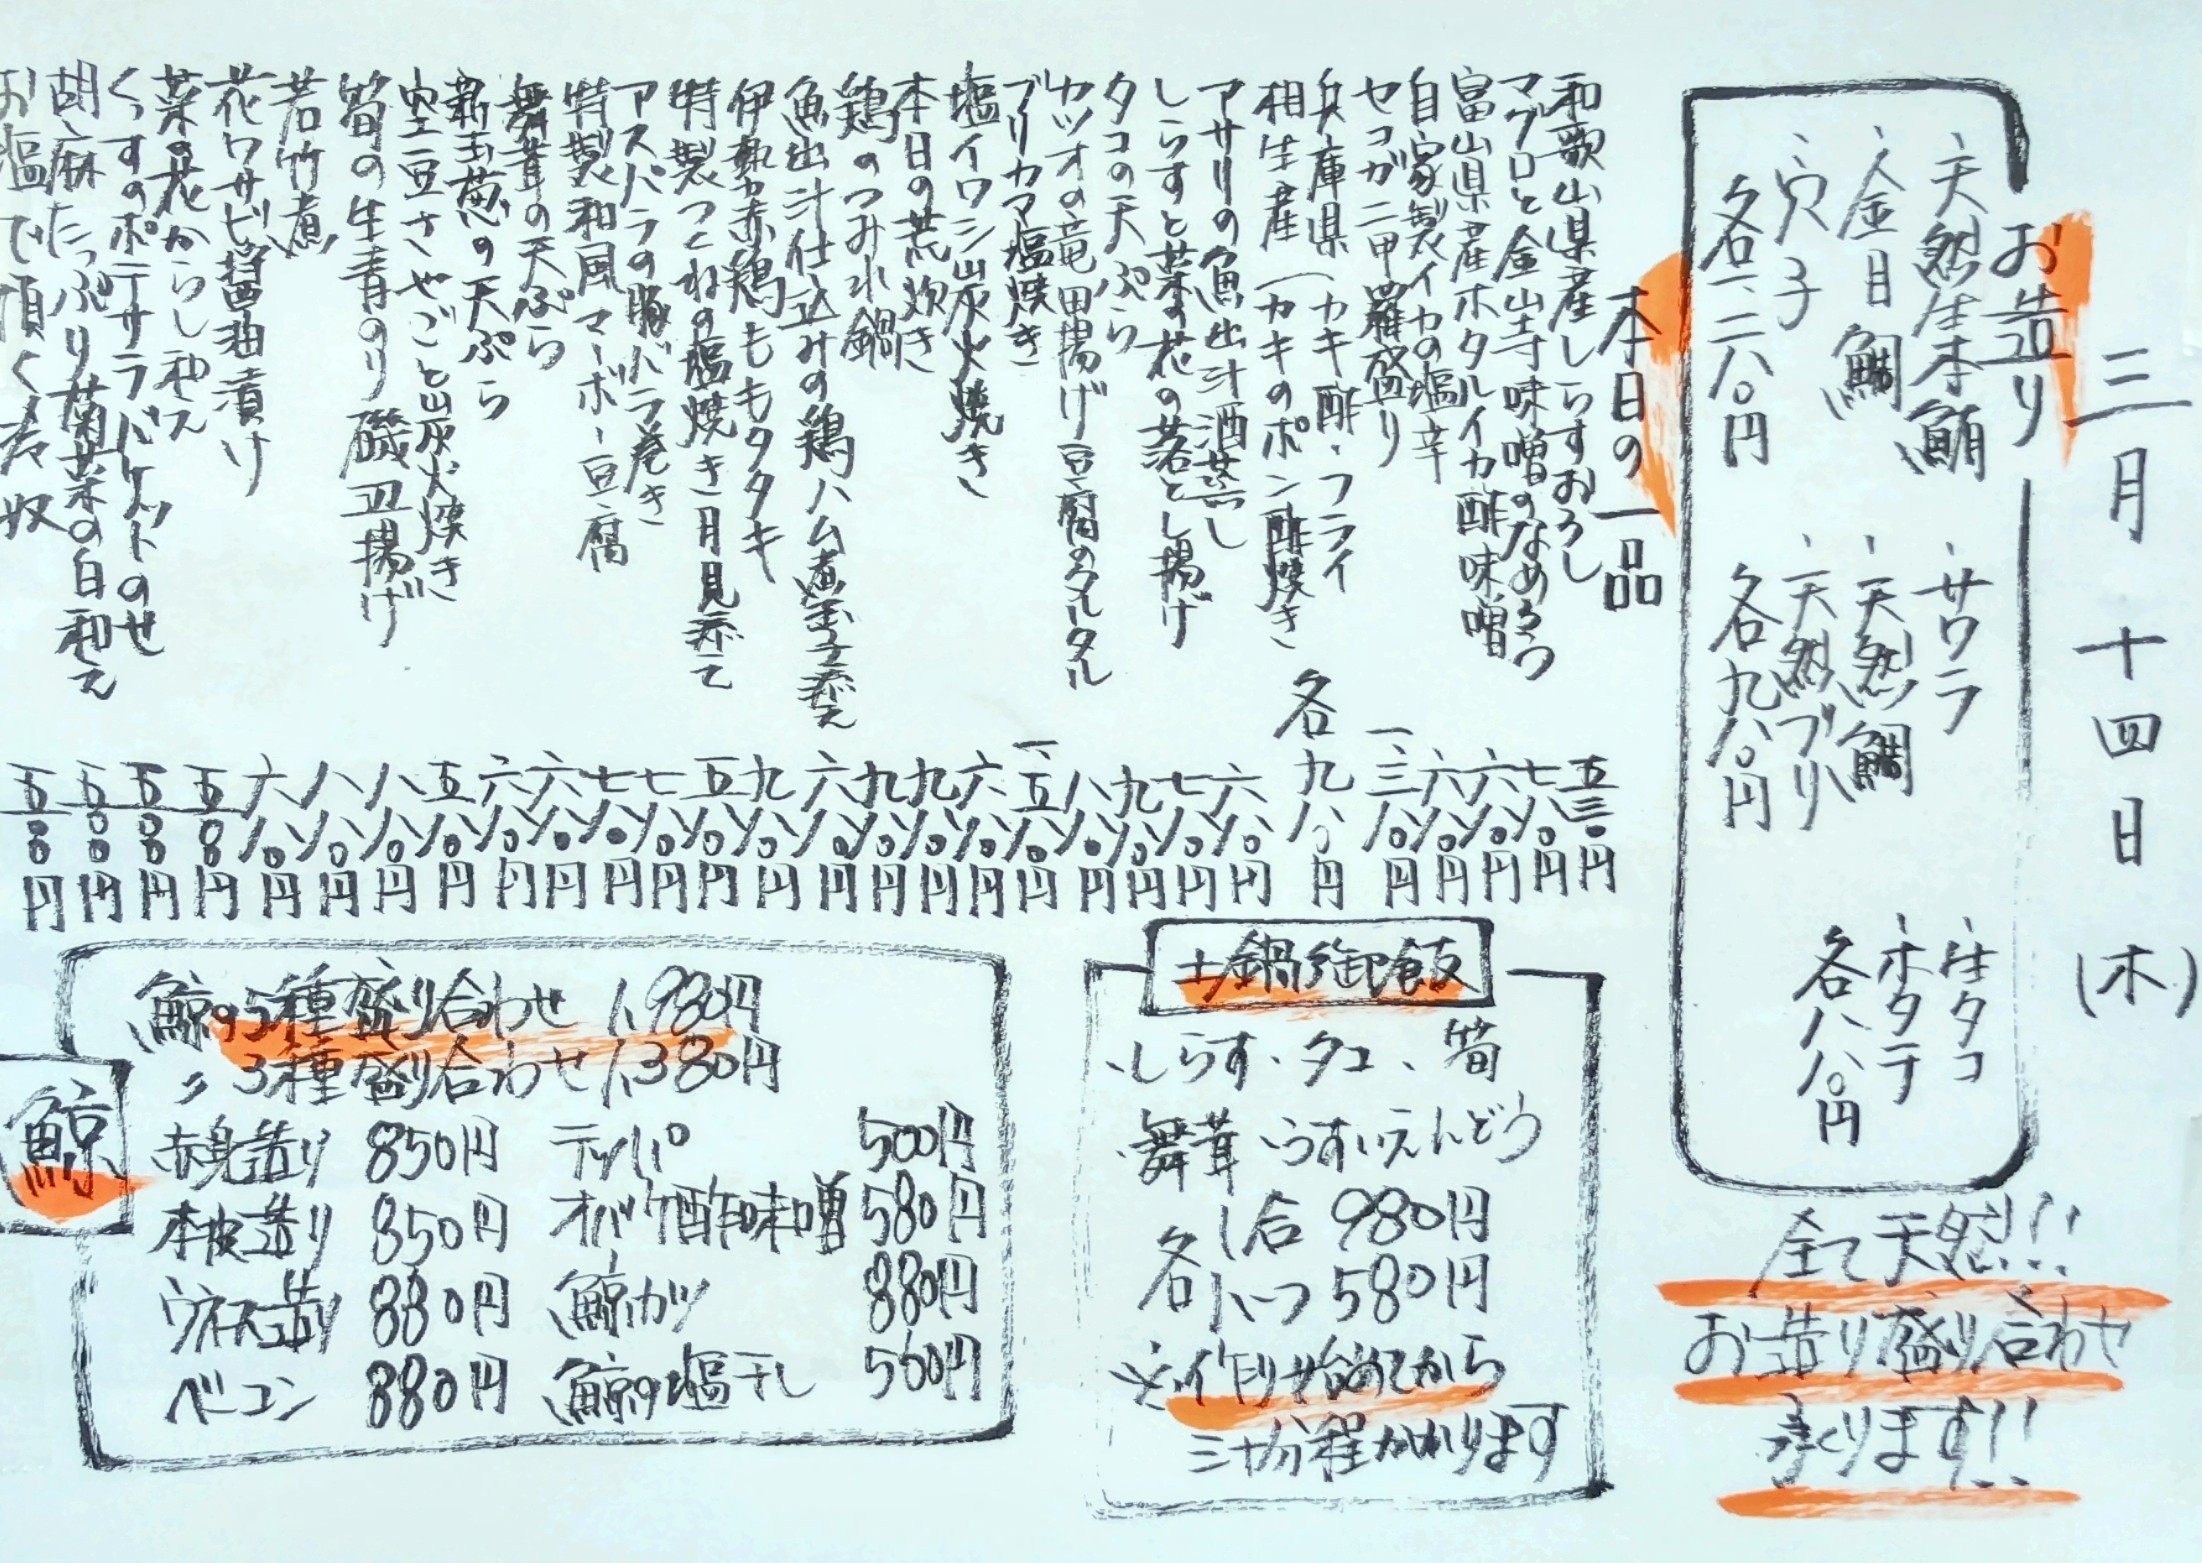 三月十四日(木)
お造り
・天然生本鮪
・金目鯛
・穴子
各一、二八〇円
・サワラ
・天然鯛
・天然ブリ
各九八〇円
・生タコ
・ホタテ
各八八〇円
全て天然!!
お造り盛り合わせ
承ります!!
本日の一品
和歌山県産しらすおろし 五三〇円
マグロと金山寺味噌のなめろう 七八〇円
富山県産ホタルイカ酢味噌 六八〇円
自家製イカの塩辛 六八〇円
セコガニ甲羅盛り 一、三八〇円
兵庫県 (カキ酢・フライ
相生産 (カキのポン酢焼き 各九八〇円
アサリの魚出汁酒蒸し 六八〇円
しらすと菜の花の落とし揚げ 七八〇円
タコの天ぷら 九八〇円
カツオの竜田揚げ豆腐のタルタル 八八〇円
ブリカマ塩焼き 一、五八〇円
塩イワシ炭火焼き 六八〇円
本日の荒炊き 九八〇円
鶏のつみ水鍋 九八〇円
魚出汁仕込みの鶏ハム煮玉子添え 六八〇円
伊勢赤鶏ももタタキ 九八〇円
特製つくねの塩焼き月見添え 五八〇円
アスパラの豚バラ巻き 七八〇円
特製和風マーボー豆腐 七八〇円
舞茸の天ぷら 六八〇円
新玉葱の天ぷら 六八〇円
空豆さやごと炭火焼き 五八〇円
筍の生青のり磯辺揚げ 八八〇円
若竹煮 八八〇円
花ワサビ醤油漬け 六八〇円
菜の花からし和え 五八〇円
くっすのポテサラバケットのせ 五八〇円
胡麻たっぷり菊菜の白和え 五八〇円
お塩で頂く冷奴 五八〇円
土鍋御飯
・しらす・タコ・筍
・舞茸・うすいえんどう
各 1合 980円
各 ハーフ 580円
※作り始めてから
三十分程かかります
鯨
鯨の5種盛り合わせ 1,980円
〃3種盛り合わせ 1,380円
赤身造り 850円
本皮造り 850円
ウネス造り 880円
ベーコン 880円
テッパ 500円
オバケ酢味噌 580円
鯨カツ 880円
鯨の塩干し 550円